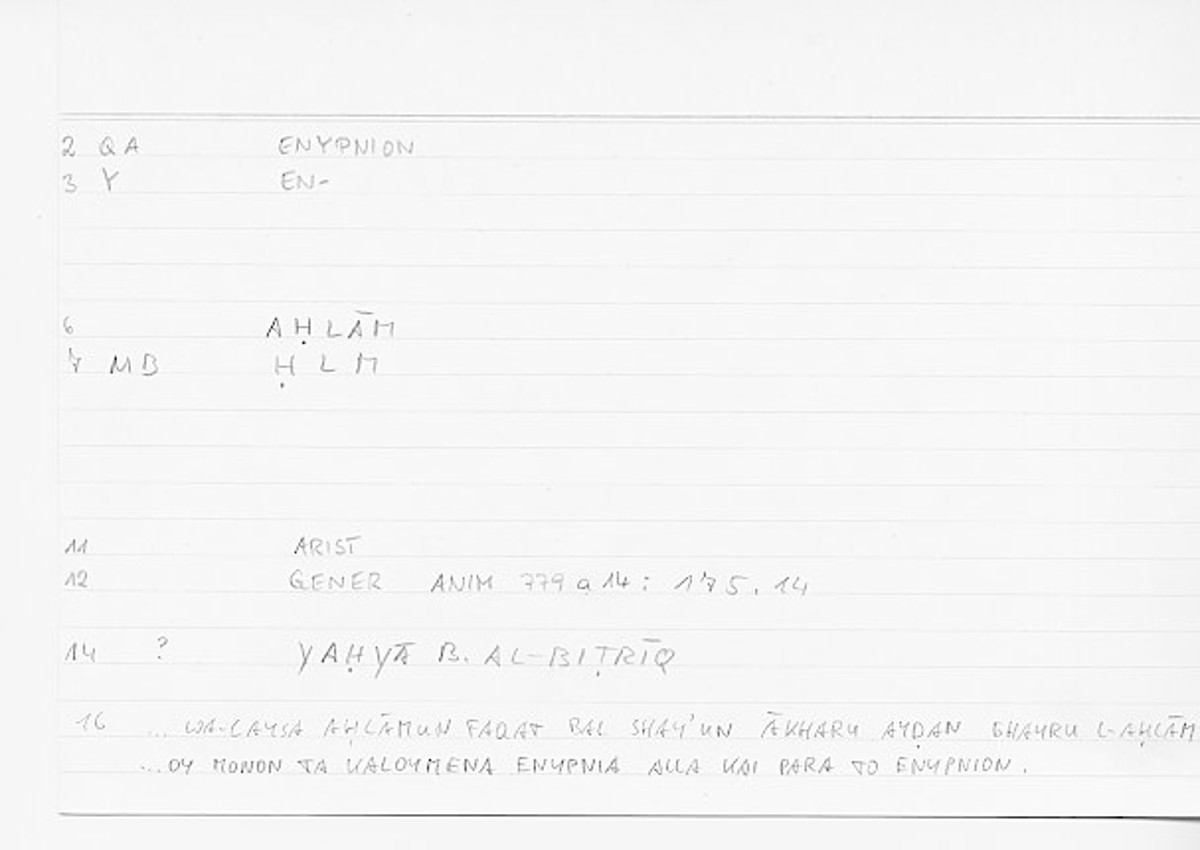 2 QA ENYPNION
3 Y EN-
6 AḤLĀM
7 MB ḤLM
11 ARIST
12 GENER ANIM 779 a 14 : 175.14
14 ? YAḤYĀ B. AL-BIṬRĪQ
16 ... WA-LAYSA AḤLĀMUN FAQAṬ BAL SHAY'UN ĀKHARU AYḌAN GHAYRU L-AḤLĀM
...OY MONON TA KALOYMENA ENYPNIA ALLA KAI PARA TO ENYPNION.